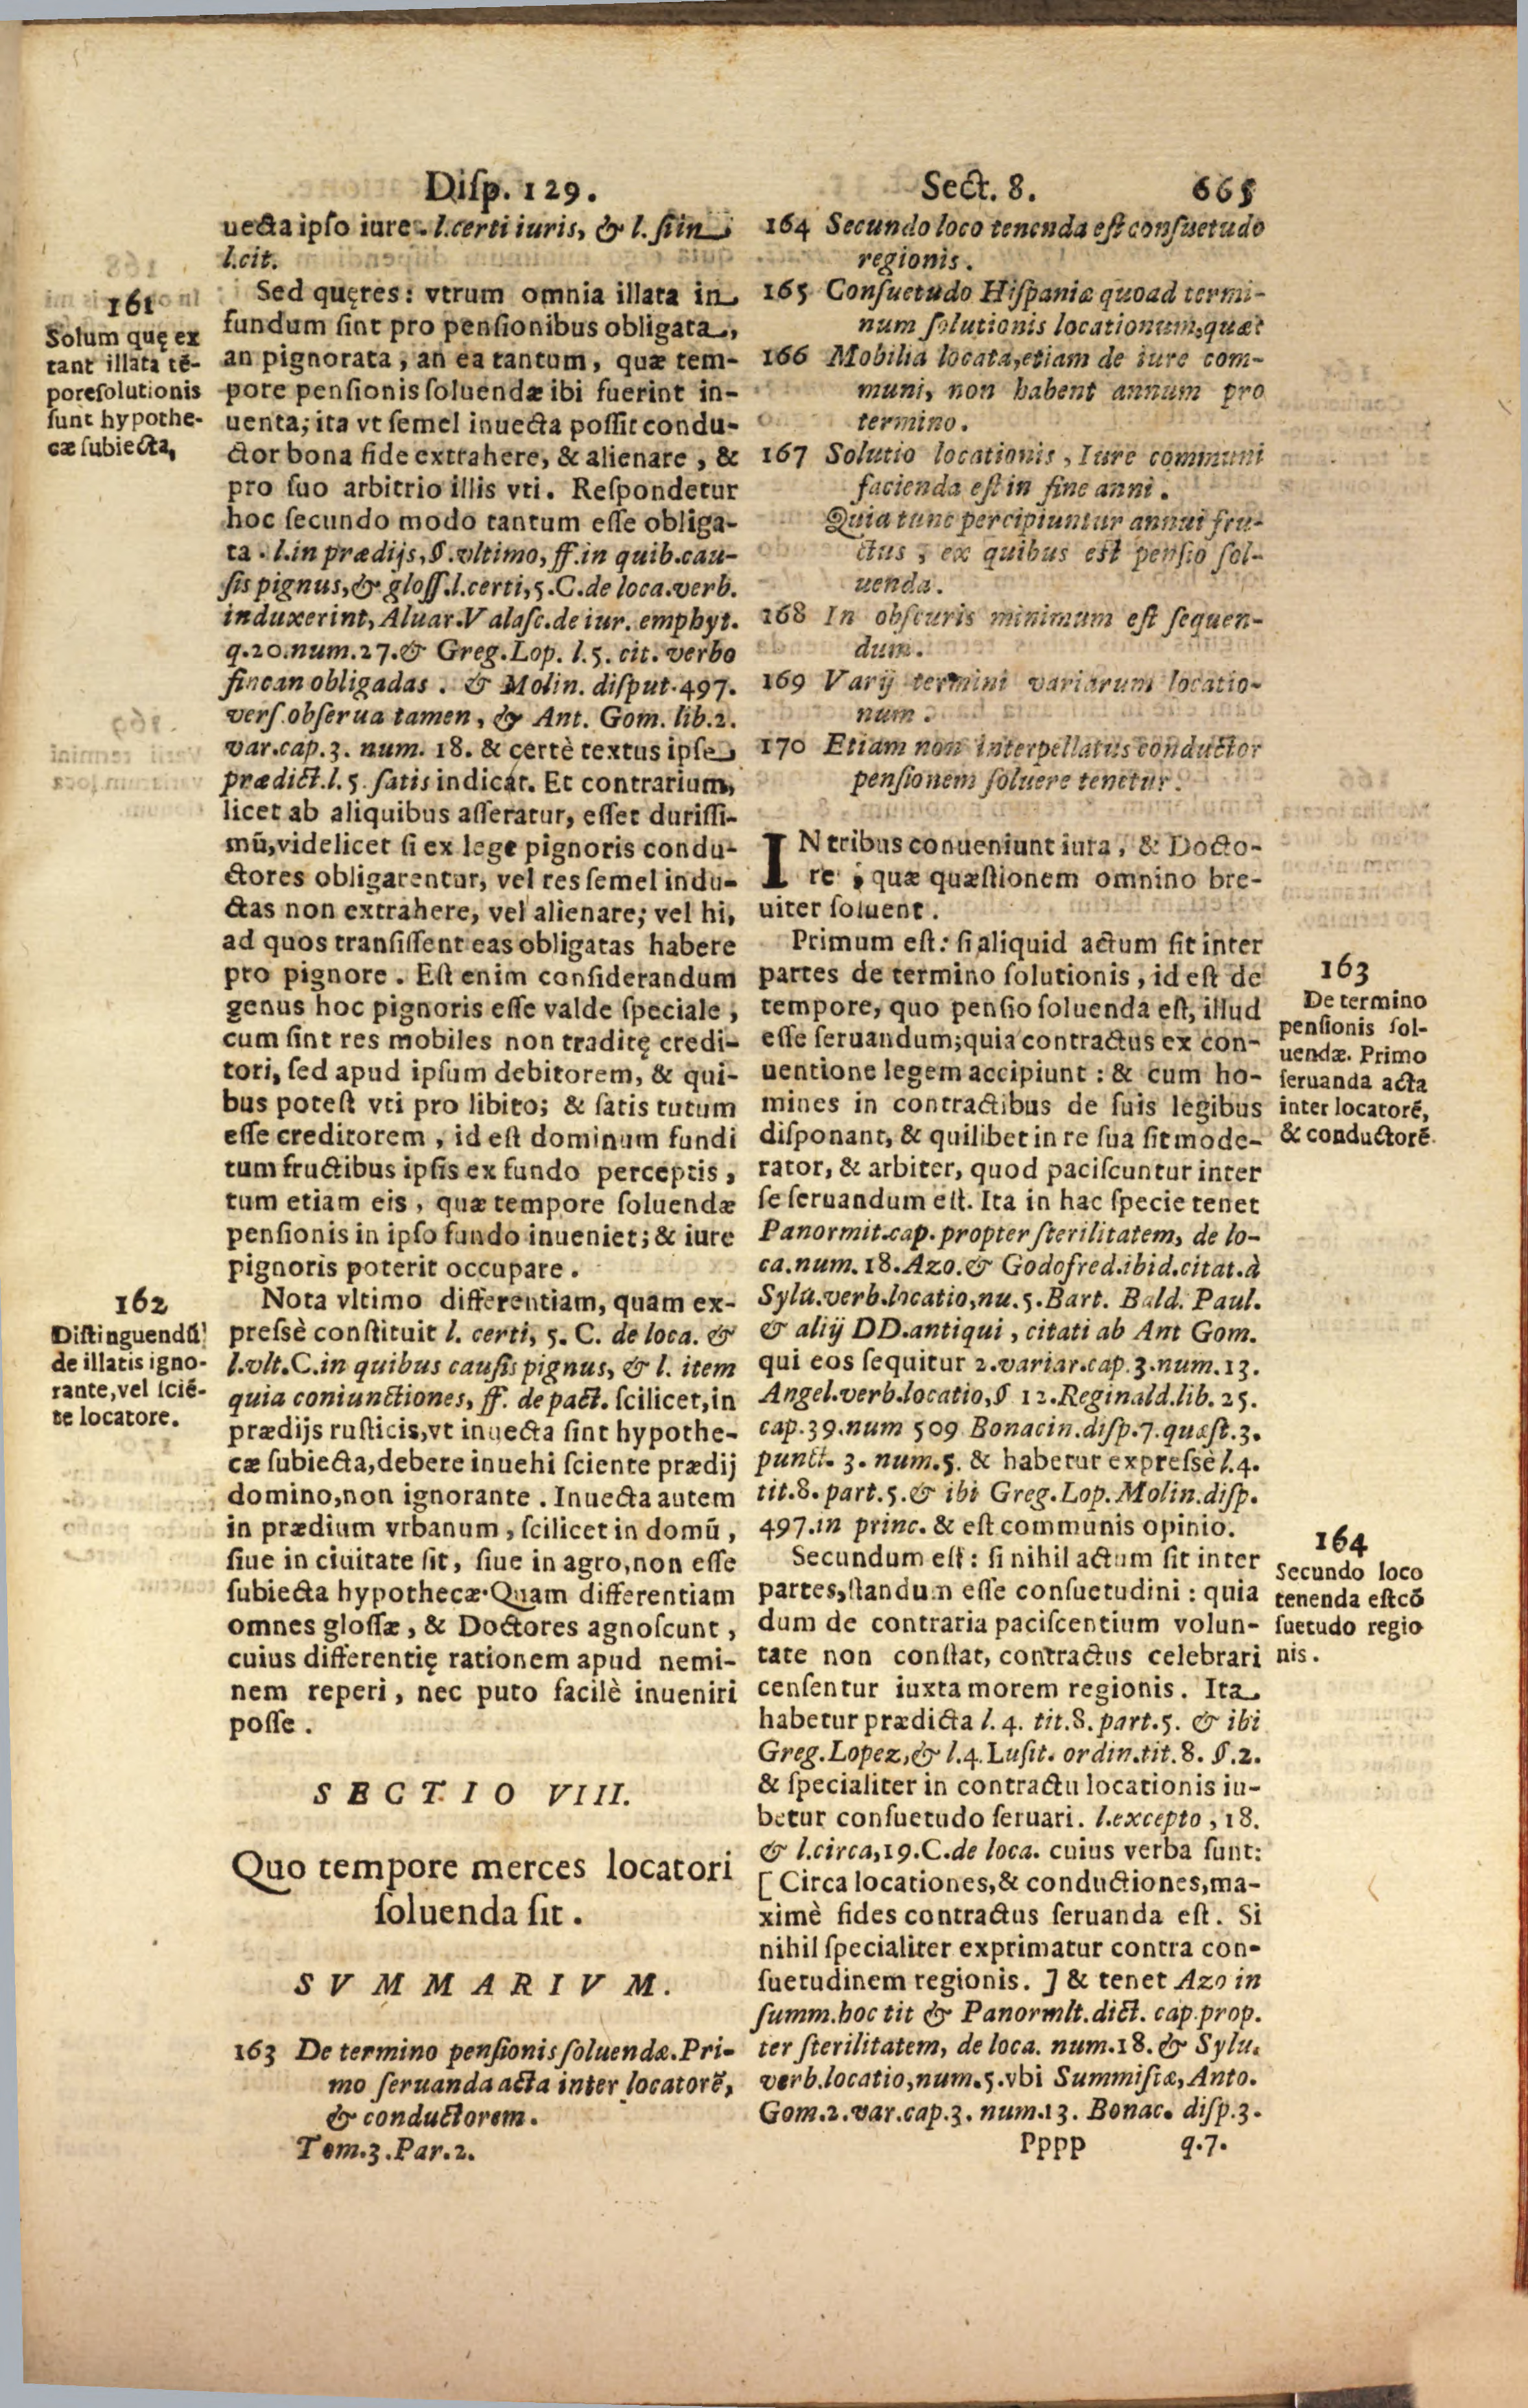 Disp. 129. Sect. 8. 665
uecta ipso iure. l.certi iuris, & l. si in
l.cit.
161
Solum quę ex
tant illata tē-
poresolutionis
sunt hypothe-
cæ subiecta,
Sed quęres: vtrum omnia illata in
fundum sint pro pensionibus obligata,
an pignorata, an ea tantum, quæ tem-
pore pensionis soluendæ ibi fuerint in-
uenta; ita vt semel inuecta possit condu-
ctor bona fide extrahere, & alienare, &
pro suo arbitrio illis vti. Respondetur
hoc secundo modo tantum esse obliga-
ta. l.in prædijs, §.vltimo, ff.in quib.cau-
sis pignus, & gloss.l.certi, 5.C.de loca.verb.
induxerint, Aluar.Valasc.de iur. emphyt.
q.20.num.27.& Greg.Lop. l.5. cit. verbo
fincan obligadas. & Molin. disput.497.
vers.obserua tamen, & Ant. Gom. lib.2.
var.cap.3. num. 18. & certè textus ipse
prædict.l.5. satis indicat. Et contrarium,
licet ab aliquibus asseratur, esset durissi-
mū, videlicet si ex lege pignoris condu-
ctores obligarentur, vel res semel indu-
ctas non extrahere, vel alienare; vel hi,
ad quos transissent eas obligatas habere
pro pignore. Est enim considerandum
genus hoc pignoris esse valde speciale,
cum sint res mobiles non traditę credi-
tori, sed apud ipsum debitorem, & qui-
bus potest vti pro libito; & satis tutum
esse creditorem, id est dominum fundi
tum fructibus ipsis ex fundo perceptis,
tum etiam eis, quæ tempore soluendæ
pensionis in ipso fundo inueniet; & iure
pignoris poterit occupare.
162
Distinguendū
de illatis igno-
rante, vel sciē-
te locatore.
Nota vltimo differentiam, quam ex-
pressè constituit l. certi, 5. C. de loca. &
l.vlt.C.in quibus causis pignus, & l. item
quia coniunctiones, ff. de pact. scilicet, in
prædijs rusticis, vt inuecta sint hypothe-
cæ subiecta, debere inuehi sciente prædij
domino, non ignorante. Inuecta autem
in prædium vrbanum, scilicet in domū,
siue in ciuitate sit, siue in agro, non esse
subiecta hypothecæ. Quam differentiam
omnes glossæ, & Doctores agnoscunt,
cuius differentię rationem apud nemi-
nem reperi, nec puto facilè inueniri
posse.
SECTIO VIII.
Quo tempore merces locatori
soluenda sit.
SVMMARIVM.
163 De termino pensionis soluendæ. Pri-
mo seruanda acta inter locatorē,
& conductorem.
Tom.3.Par.2.
164 Secundo loco tenenda est consuetudo
regionis.
165 Consuetudo Hispaniæ quoad termi-
num solutionis locationum, quæ?
166 Mobilia locata, etiam de iure com-
muni, non habent annum pro
termino.
167 Solutio locationis, Iure communi
facienda est in fine anni.
Quia tunc percipiuntur annui fru-
ctus, ex quibus est pensio sol-
uenda.
168 In obscuris minimum est sequen-
dum.
169 Varij termini variarum locatio-
num.
170 Etiam non interpellatus conductor
pensionem soluere tenetur.
IN tribus conueniunt iura, & Docto-
re ; quæ quæstionem omnino bre-
uiter soluent.
163
De termino
pensionis sol-
uendæ. Primo
seruanda acta
inter locatorē,
& conductorē
Primum est: si aliquid actum sit inter
partes de termino solutionis, id est de
tempore, quo pensio soluenda est, illud
esse seruandum; quia contractus ex con-
uentione legem accipiunt: & cum ho-
mines in contractibus de suis legibus
disponant, & quilibet in re sua sit mode-
rator, & arbiter, quod paciscuntur inter
se seruandum est. Ita in hac specie tenet
Panormit.cap. propter sterilitatem, de lo-
ca.num.18.Azo.& Godofred.ibid.citat.à
Sylu.verb.locatio, nu.5.Bart. Bald. Paul.
& alij DD.antiqui, citati ab Ant Gom.
qui eos sequitur 2.variar.cap.3.num.13.
Angel.verb.locatio, § 12.Reginald.lib.25.
cap.39.num 509 Bonacin.disp.7.quæst.3.
punct. 3. num.5. & habetur expressè l.4.
tit.8. part.5.& ibi Greg.Lop.Molin.disp.
497.in princ. & est communis opinio.
164
Secundo loco
tenenda est cō
suetudo regio
nis.
Secundum est: si nihil actum sit inter
partes, standum esse consuetudini: quia
dum de contraria paciscentium volun-
tate non constat, contractus celebrari
censentur iuxta morem regionis. Ita
habetur prædicta l. 4. tit.8. part.5. & ibi
Greg.Lopez, & l.4. Lusit. ordin.tit.8. §.2.
& specialiter in contractu locationis iu-
betur consuetudo seruari. l.excepto, 18.
& l.circa, 19.C.de loca. cuius verba sunt:
[ Circa locationes, & conductiones, ma-
ximè fides contractus seruanda est. Si
nihil specialiter exprimatur contra con-
suetudinem regionis. ] & tenet Azo in
summ.hoc tit & Panormlt.dict. cap.prop.
ter sterilitatem, de loca. num.18. & Sylu.
verb.locatio, num.5.vbi Summistæ, Anto.
Gom.2.var.cap.3. num.13. Bonac. disp.3.
Pppp q.7.